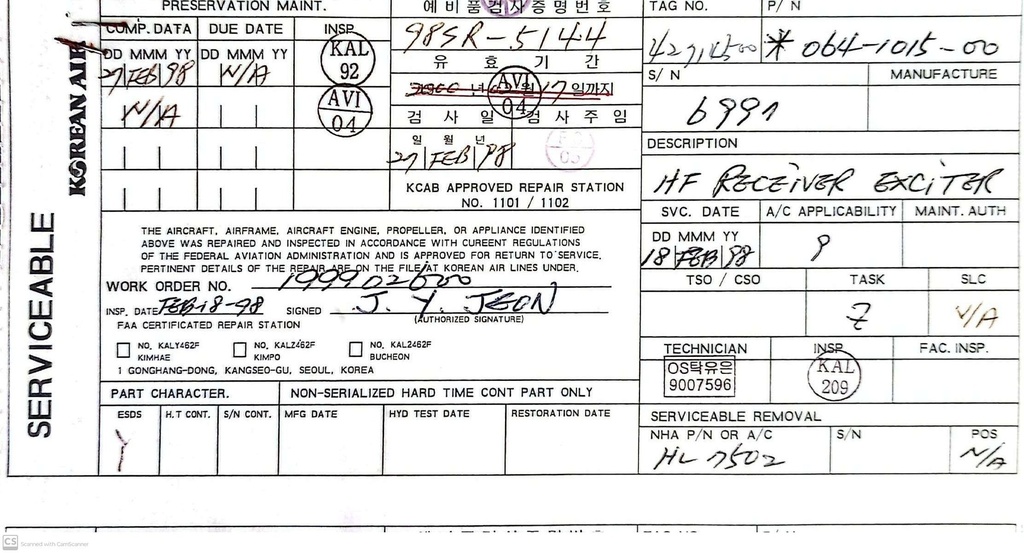 PRESERVATION MAINT.
COMP. DATA DUE DATE INSP.
DD MMM YY DD MMM YY
27 FEB 98 N/A
KAL 92
N/A
AVI 04
예비품검사증명번호
98SR-5144
유 효 기 간
년 월 17 일까지
AVI 04
검 사 일 검 사 주 임
일 월 년
27 FEB 98
KCAB APPROVED REPAIR STATION
NO. 1101 / 1102
TAG NO. P/ N
* 064-1015-00
S/ N MANUFACTURE
6991
DESCRIPTION
HF RECEIVER EXCITER
SVC. DATE A/C APPLICABILITY MAINT. AUTH
DD MMM YY
18 FEB 98 9
TSO / CSO TASK SLC
7 N/A
TECHNICIAN INSP. FAC. INSP.
OS탁유은
9007596
KAL 209
SERVICEABLE REMOVAL
NHA P/N OR A/C S/N POS
HL 7502 N/A
KOREAN AIR
SERVICEABLE
THE AIRCRAFT, AIRFRAME, AIRCRAFT ENGINE, PROPELLER, OR APPLIANCE IDENTIFIED
ABOVE WAS REPAIRED AND INSPECTED IN ACCORDANCE WITH CUREENT REGULATIONS
OF THE FEDERAL AVIATION ADMINISTRATION AND IS APPROVED FOR RETURN TO SERVICE.
PERTINENT DETAILS OF THE REPAIR ARE ON THE FILE AT KOREAN AIR LINES UNDER.
WORK ORDER NO. 199902600
INSP. DATE FEB-18-98 SIGNED J. Y. JEON
(AUTHORIZED SIGNATURE)
FAA CERTIFICATED REPAIR STATION
NO. KALY462F NO. KALZ462F NO. KAL2462F
KIMHAE KIMPO BUCHEON
1 GONGHANG-DONG, KANGSEO-GU, SEOUL, KOREA
PART CHARACTER. NON-SERIALIZED HARD TIME CONT PART ONLY
ESDS H.T CONT. S/N CONT. MFG DATE HYD TEST DATE RESTORATION DATE
Y
CS Scanned with CamScanner